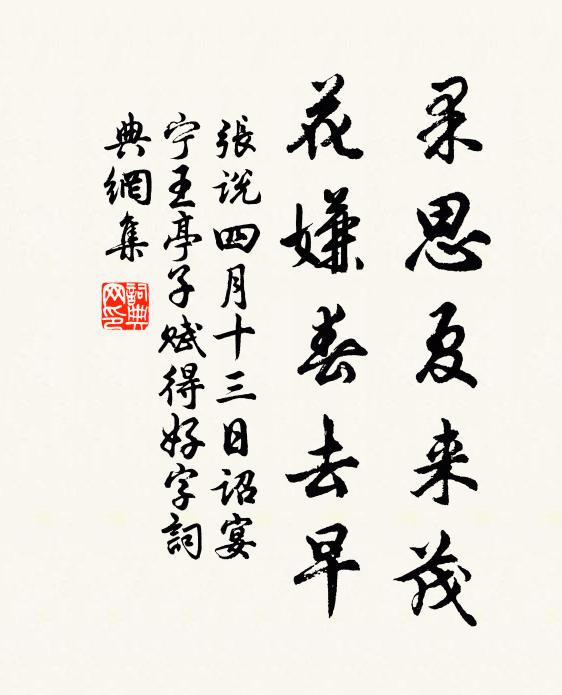 果思夏来茂
花嫌春去早
張说四月十三日诏宴
宁王亭子赋得好字詞
典網集
詞典网印